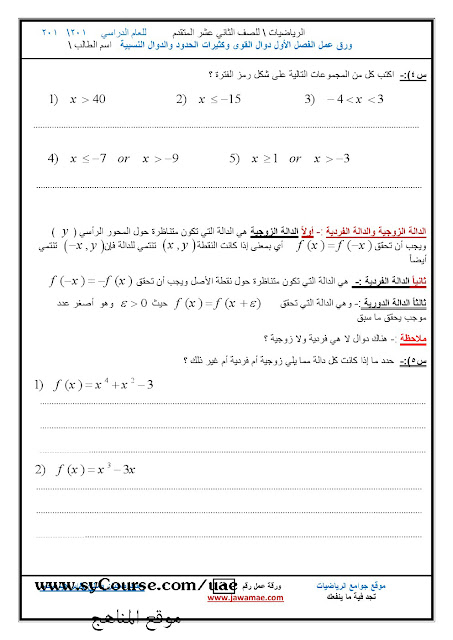 الرياضيات \ للصف الثاني عشر المتقدم للعام الدراسي ٢٠١ \ ٢٠١
ورق عمل الفصل الأول دوال القوى وكثيرات الحدود والدوال النسبية اسم الطالب \
س٤):- اكتب كل من المجموعات التالية على شكل رمز الفترة ؟
1) x > 40 2) x ≤ −15 3) −4 < x < 3
4) x ≤ −7 or x > −9 5) x ≥ 1 or x > −3
الدالة الزوجية والدالة الفردية :- أولاً الدالة الزوجية هي الدالة التي تكون متناظرة حول المحور الرأسي ( y )
ويجب أن تحقق f (x) = f (−x) أي بمعنى إذا كانت النقطة (x , y) تنتمي للدالة فإن (−x , y) تنتمي
أيضاً
ثانياً الدالة الفردية :- هي الدالة التي تكون متناظرة حول نقطة الأصل ويجب أن تحقق f (−x) = −f (x)
ثالثاً الدالة الدورية :- وهي الدالة التي تحقق f (x) = f (x + ε) حيث ε > 0 وهو أصغر عدد
موجب يحقق ما سبق
ملاحظة :- هناك دوال لا هي فردية ولا زوجية ؟
س٥):- حدد ما إذا كانت كل دالة مما يلي زوجية أم فردية أم غير ذلك ؟
1) f (x) = x⁴ + x² − 3
2) f (x) = x³ − 3x
موقع جوامع الرياضيات ورقة عمل رقم
www.syCourse.com/uae
تجد فية ما ينفعك www.jawamae.com
موقع المناهج